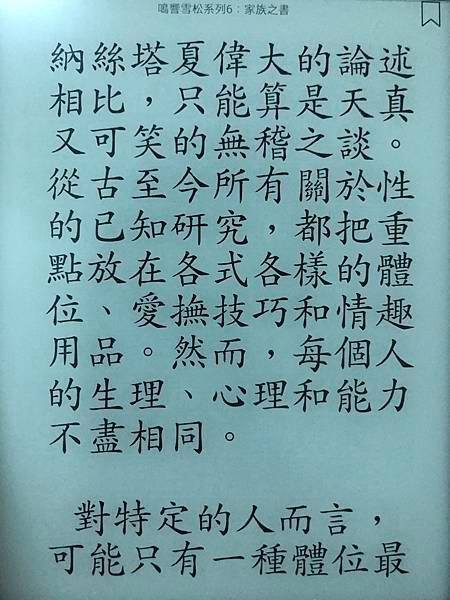 鳴響雪松系列6：家族之書
納絲塔夏偉大的論述
相比，只能算是天真
又可笑的無稽之談。
從古至今所有關於性
的已知研究，都把重
點放在各式各樣的體
位、愛撫技巧和情趣
用品。然而，每個人
的生理、心理和能力
不盡相同。
對特定的人而言，
可能只有一種體位最